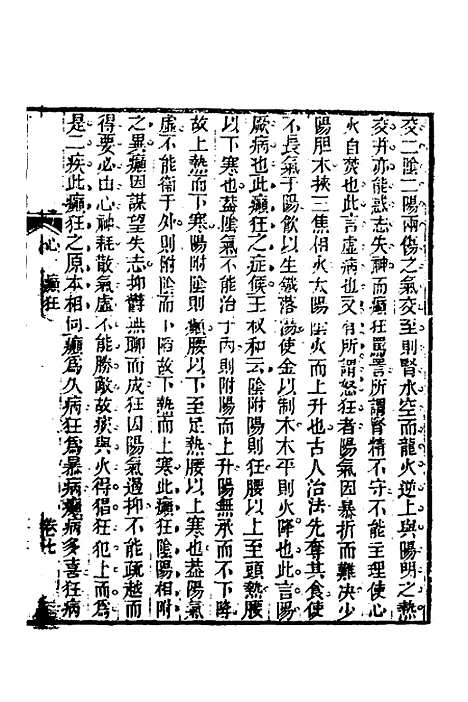 交二陰二陽兩傷之氣交至則腎水空而龍火逆上與陽明之熱
交并亦能惑志失神而癲狂罵詈所謂腎精不守不能主理使心
火自焚也此言虛病也又有所謂怒狂者陽氣因暴折而難決少
陽胆木挾三焦相火太陽陰火而上升也古人治法先奪其食使
不長氣于陽飲以生鐵落湯使金以制木木平則火降也此言陽
厥病也此癲狂之症候王叔和云陰附陽則狂腰以上至頭熱腰
以下寒也蓋陰氣不能治于內則附陽而上升陽無承而不下降
故上熱而下寒陽附陰則癲腰以下至足熱腰以上寒也蓋陽氣
虛不能衛于外則附陰而下陷故下熱而上寒此癲狂陰陽相附
之異癲因謀望失志抑鬱無聊而成狂因陽氣過抑不能疏越而
得要必由心神耗散氣虛不能勝敵故痰與火得猖狂犯上而為
是二疾此癲狂之原本相伺癲為久病狂為暴病癲病多喜狂病
心 癲狂 卷七